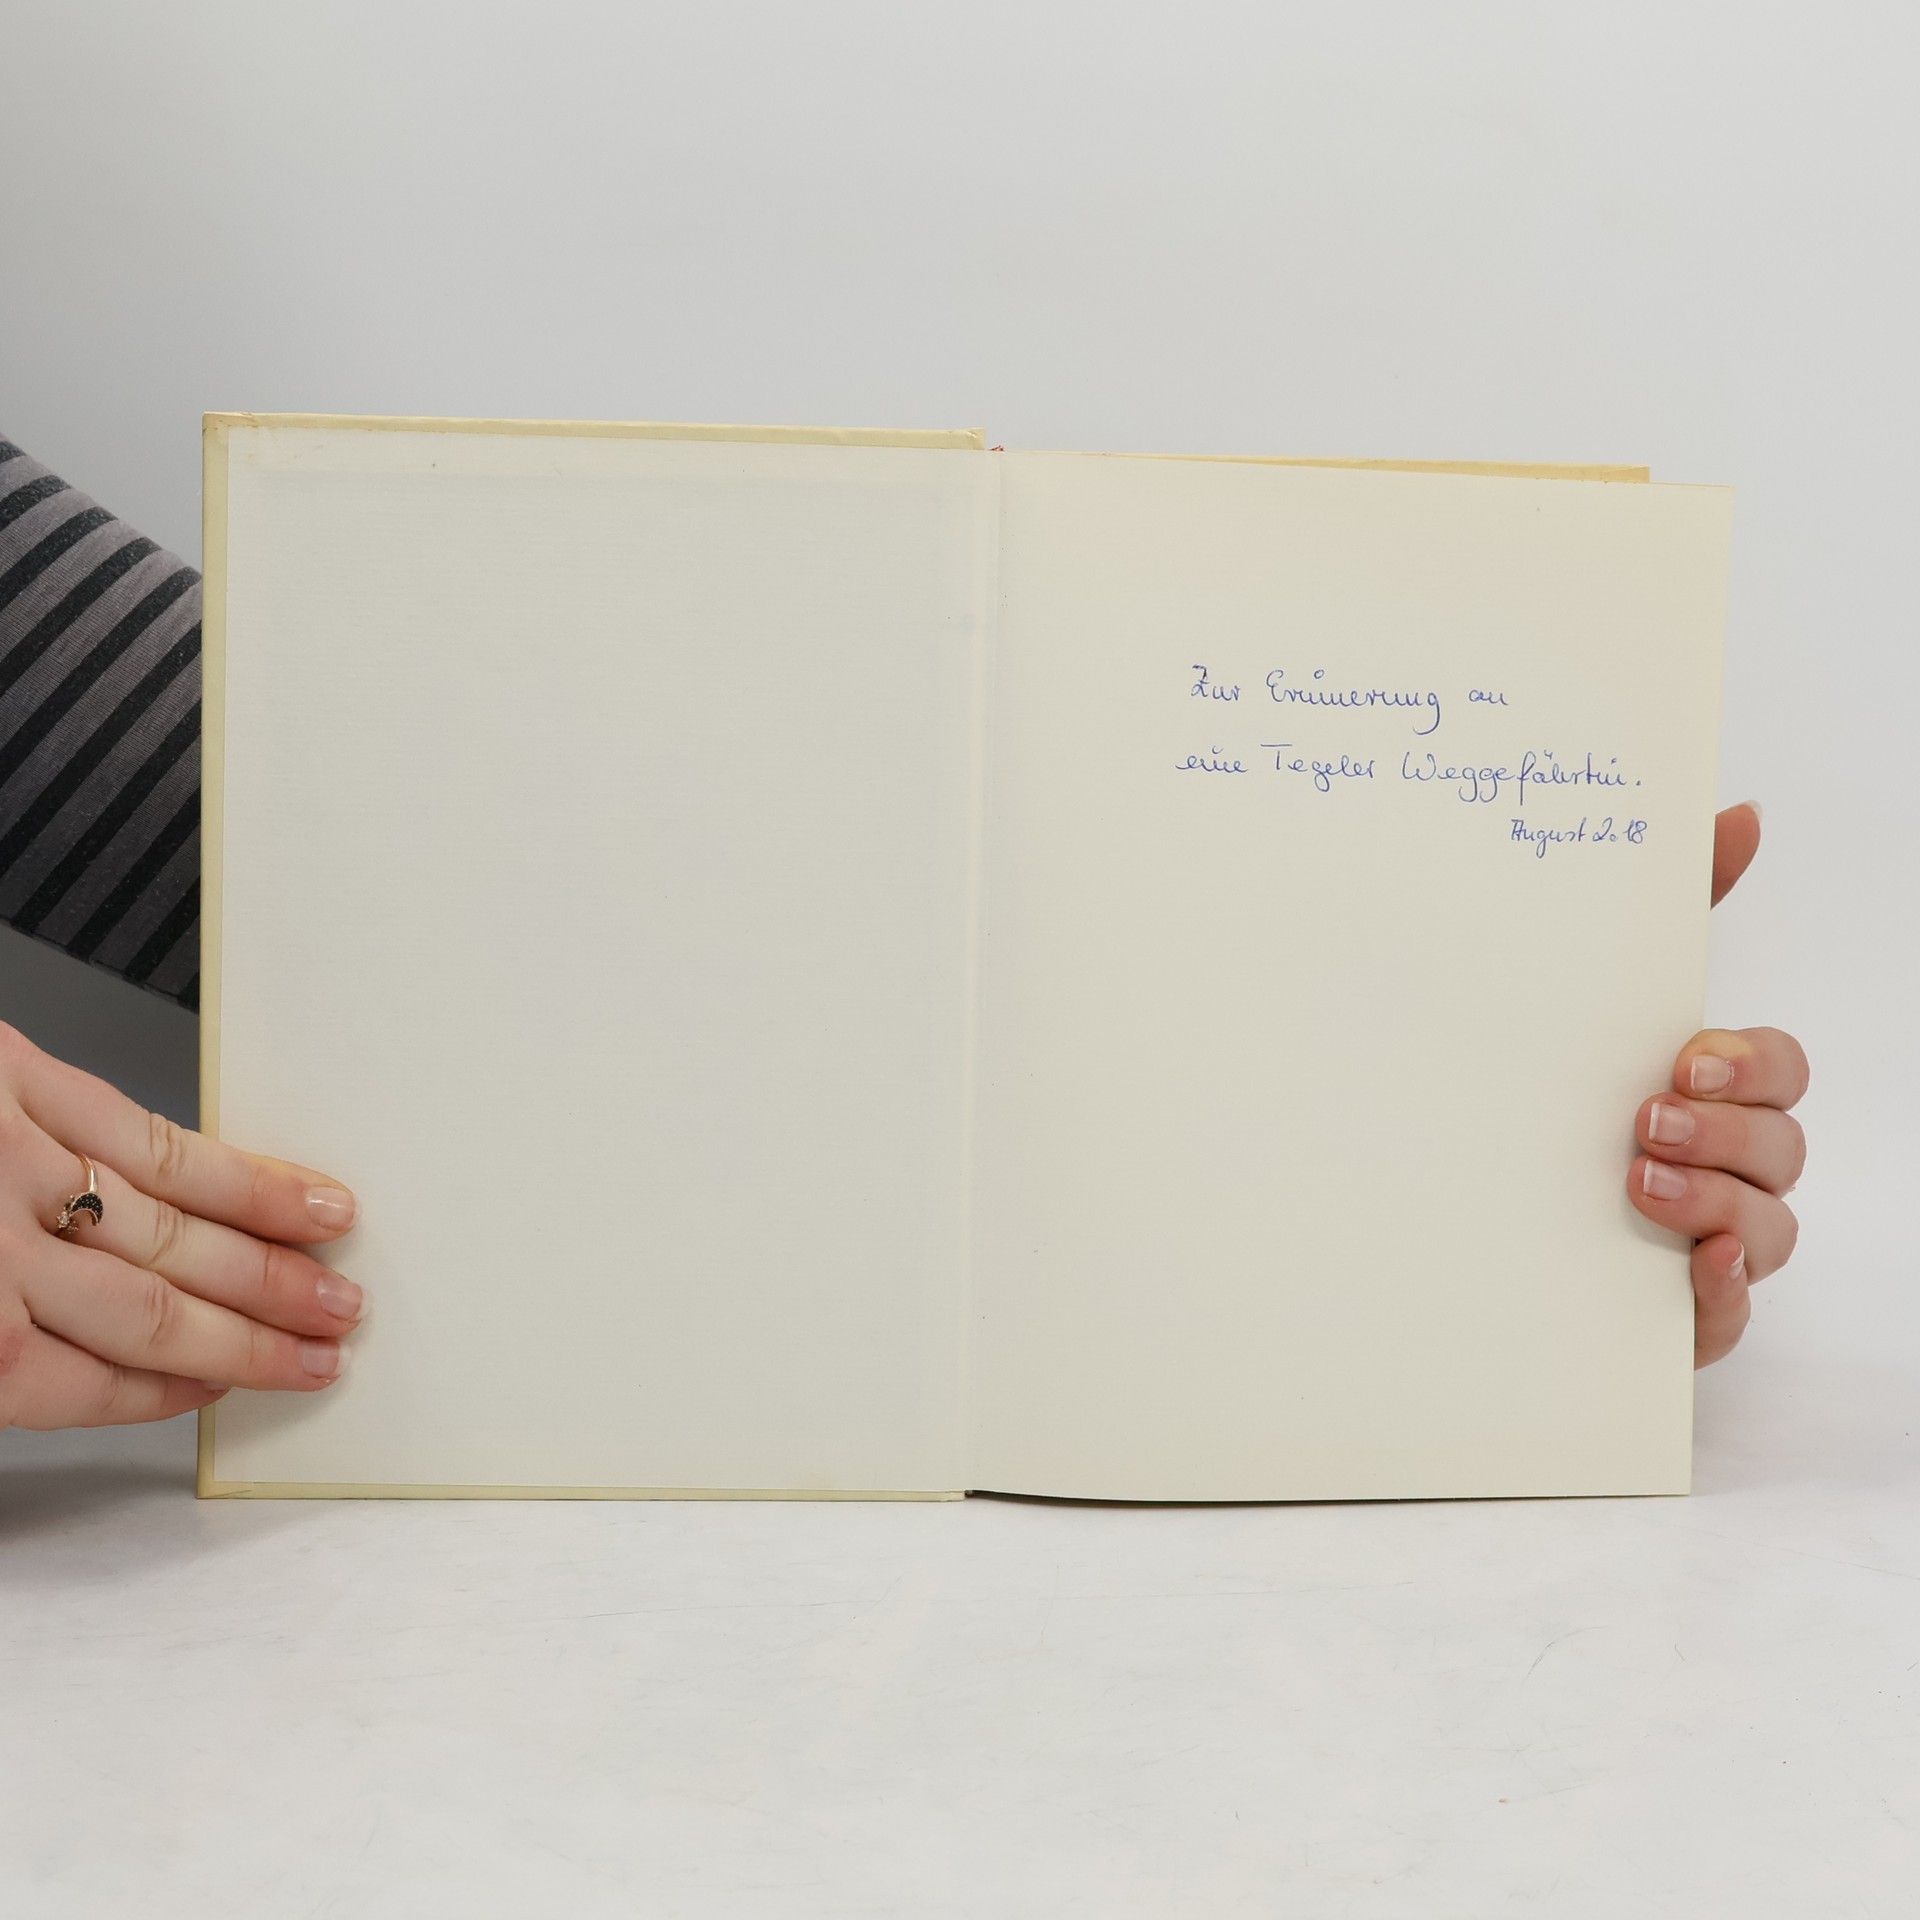 Zur Erinnerung an
eine Tegeler Weggefährtin.
August 2018